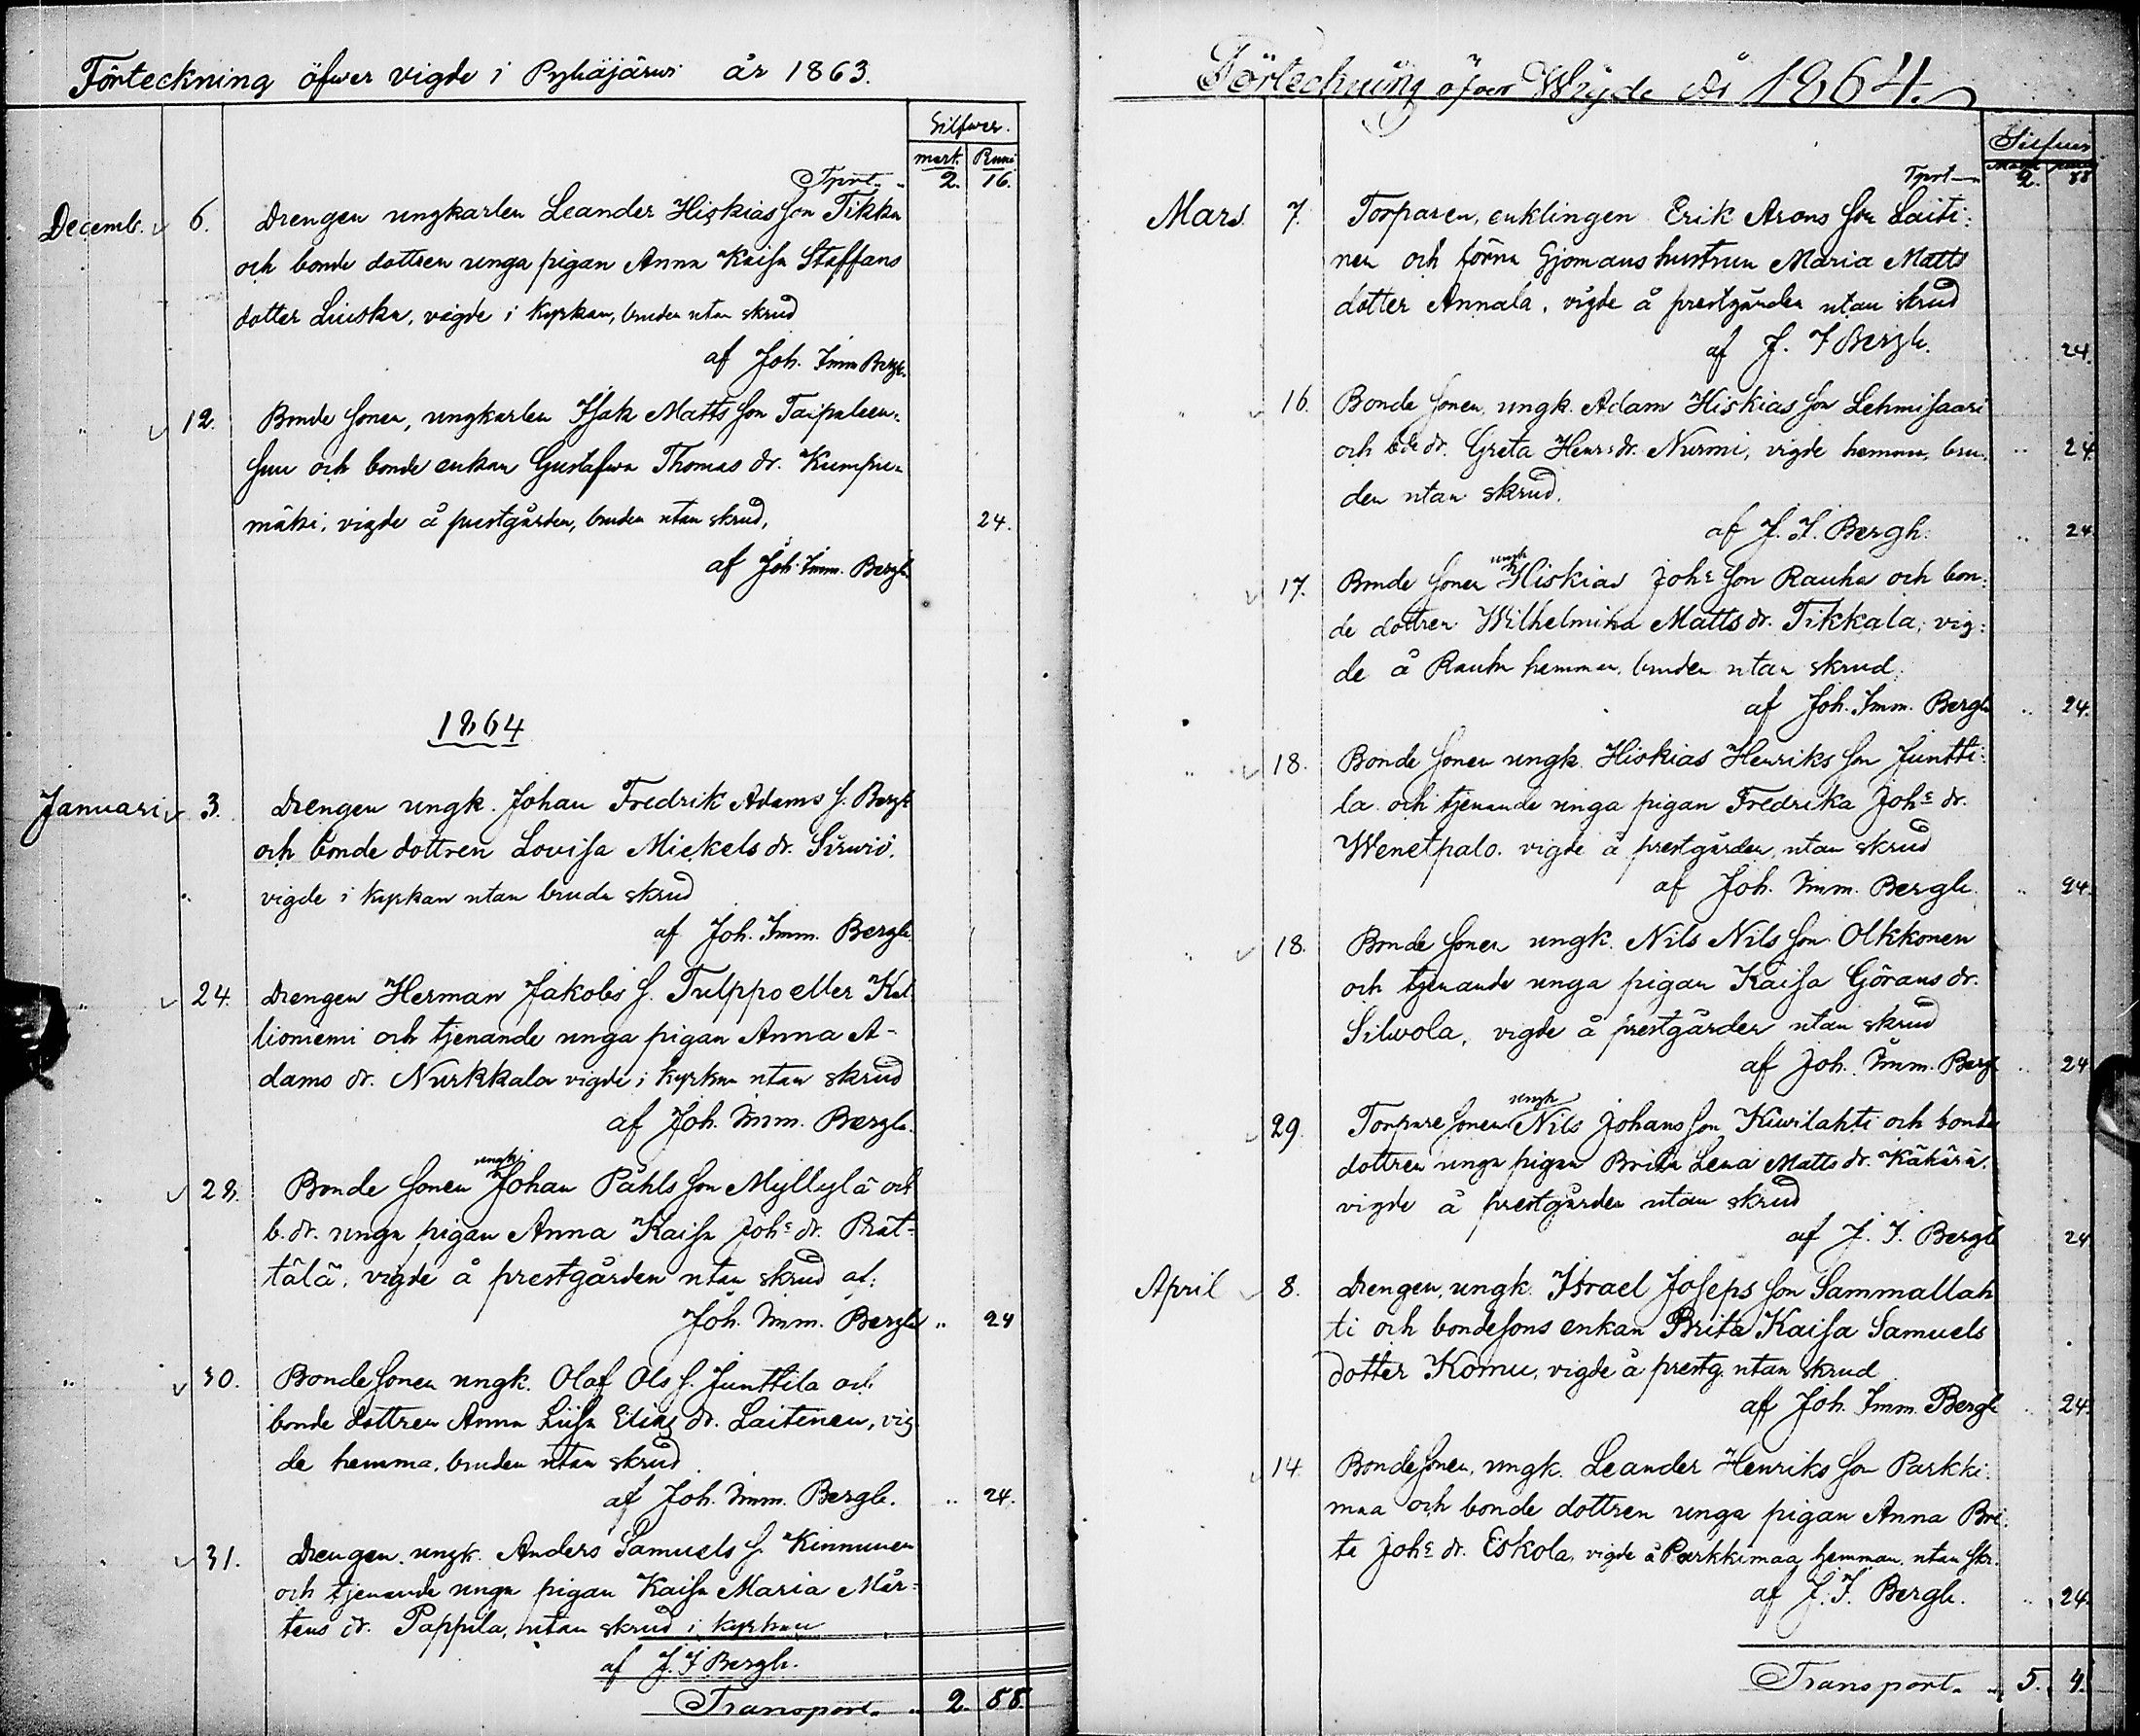 Förteckning öfwer vigde i Pyhäjärwi år 1863.
Silfwer.
mark. Penni
Tprt. " 2. 16.
Decemb. 6. Drengen ungkarlen Leander Hiskias son Tikka
och bonde dottren unga pigan Anna Kaisa Staffans
dotter Liuska, vigde i kyrkan, bruden utan skrud
af Joh. Imm Bergh.
" 12. Bonde sonen, ungkarlen Isak Matts son Taipaleen-
suu och bonde enkan Gustafwa Thomas dr. Kumpu-
mäki, vigde å prestgården, bruden utan skrud, 24.
af Joh. Imm. Bergh
1864
Januari 3. Drengen ungk. Johan Fredrik Adams s. Bergh
och bonde dottren Lovisa Mickels dr. Sirwiö.
vigde i kyrkan utan brude skrud
af Joh. Imm. Bergh
" 24. Drengen Herman Jakobs s. Tulppo eller Kal-
lioniemi och tjenande unga pigan Anna A-
dams dr. Nurkkala vigde i kyrkan utan skrud
af Joh. Imm. Bergh.
" 28. Bonde sonen ungk. Johan Påhls son Myllylä och
b. dr. unga pigan Anna Kaisa Johs dr. Prät-
tälä, vigde å prestgården utan skrud af:
Joh. Imm. Bergh " 24
" 30. Bonde sonen ungk. Olof Ols s. Junttila och
bonde dottren Anna Liisa Elias dr. Laitinen, vig
de hemma, bruden utan skrud
af Joh. Imm. Bergh. " 24.
" 31. Drengen, ungk. Anders Samuels s. Kinnunen
och tjenande unga pigan Kaisa Maria Mår-
tens dr. Pappila, utan skrud i kyrkan
af J. I Bergh.
Transport. " 2. 88.
Förteckning öfver Wigde År 1864.
Silfver
Mark penni
Tprt " 2. 88
Mars. 7. Torparen, enklingen Erik Arons son Laiti-
nen och förra Gjomans hustrun Maria Matts
dotter Annala, vigde å prestgården utan skrud
af J. I Bergh. " 24.
" 16. Bonde sonen, ungk. Adam Hiskias son Lehmisaari
och bde dr. Greta Henrs dr. Nurmi, vigde hemma, bru- " 24
den utan skrud.
af J. I. Bergh. " 24
" 17. Bonde sonen ungk Hiskias Johs son Rauha och bon-
de dottren Wilhelmina Matts dr. Tikkala, vig-
de å Rauha hemman, bruden utan skrud,
af Joh. Imm. Bergh " 24.
" 18. Bonde sonen ungk. Hiskias Henriks son Juntti-
la och tjenande unga pigan Fredrika Johs dr.
Wenetpalo. vigde å prestgården, utan skrud
af Joh. Imm. Bergh. " 24.
" 18. Bonde sonen ungk. Nils Nils son Olkkonen
och tjenande unga pigan Kaisa Görans dr.
Silwola, vigde å prestgården utan skrud
af Joh. Imm. Bergh " 24
29. Torpare sonen ungk Nils Johans son Kiwilahti och bonde
dottren unga pigan Brita Lena Matts dr. Kähärä.
vigde å prestgården utan skrud
af J. I. Bergh 24
April 8. Drengen, ungk. Israel Joseps son Sammallah
ti och bondesons enkan Brita Kaisa Samuels
dotter Komu, vigde å prestg. utan skrud
af Joh. Imm. Bergh " 24.
" 14. Bondesonen, ungk. Leander Henriks son Parkki-
maa och bonde dottren unga pigan Anna Bri-
ta Johs dr. Eskola, vigde å Parkkimaa hemman, utan skr.
af J. I. Bergh. " 24.
Transport. " 5. 4.